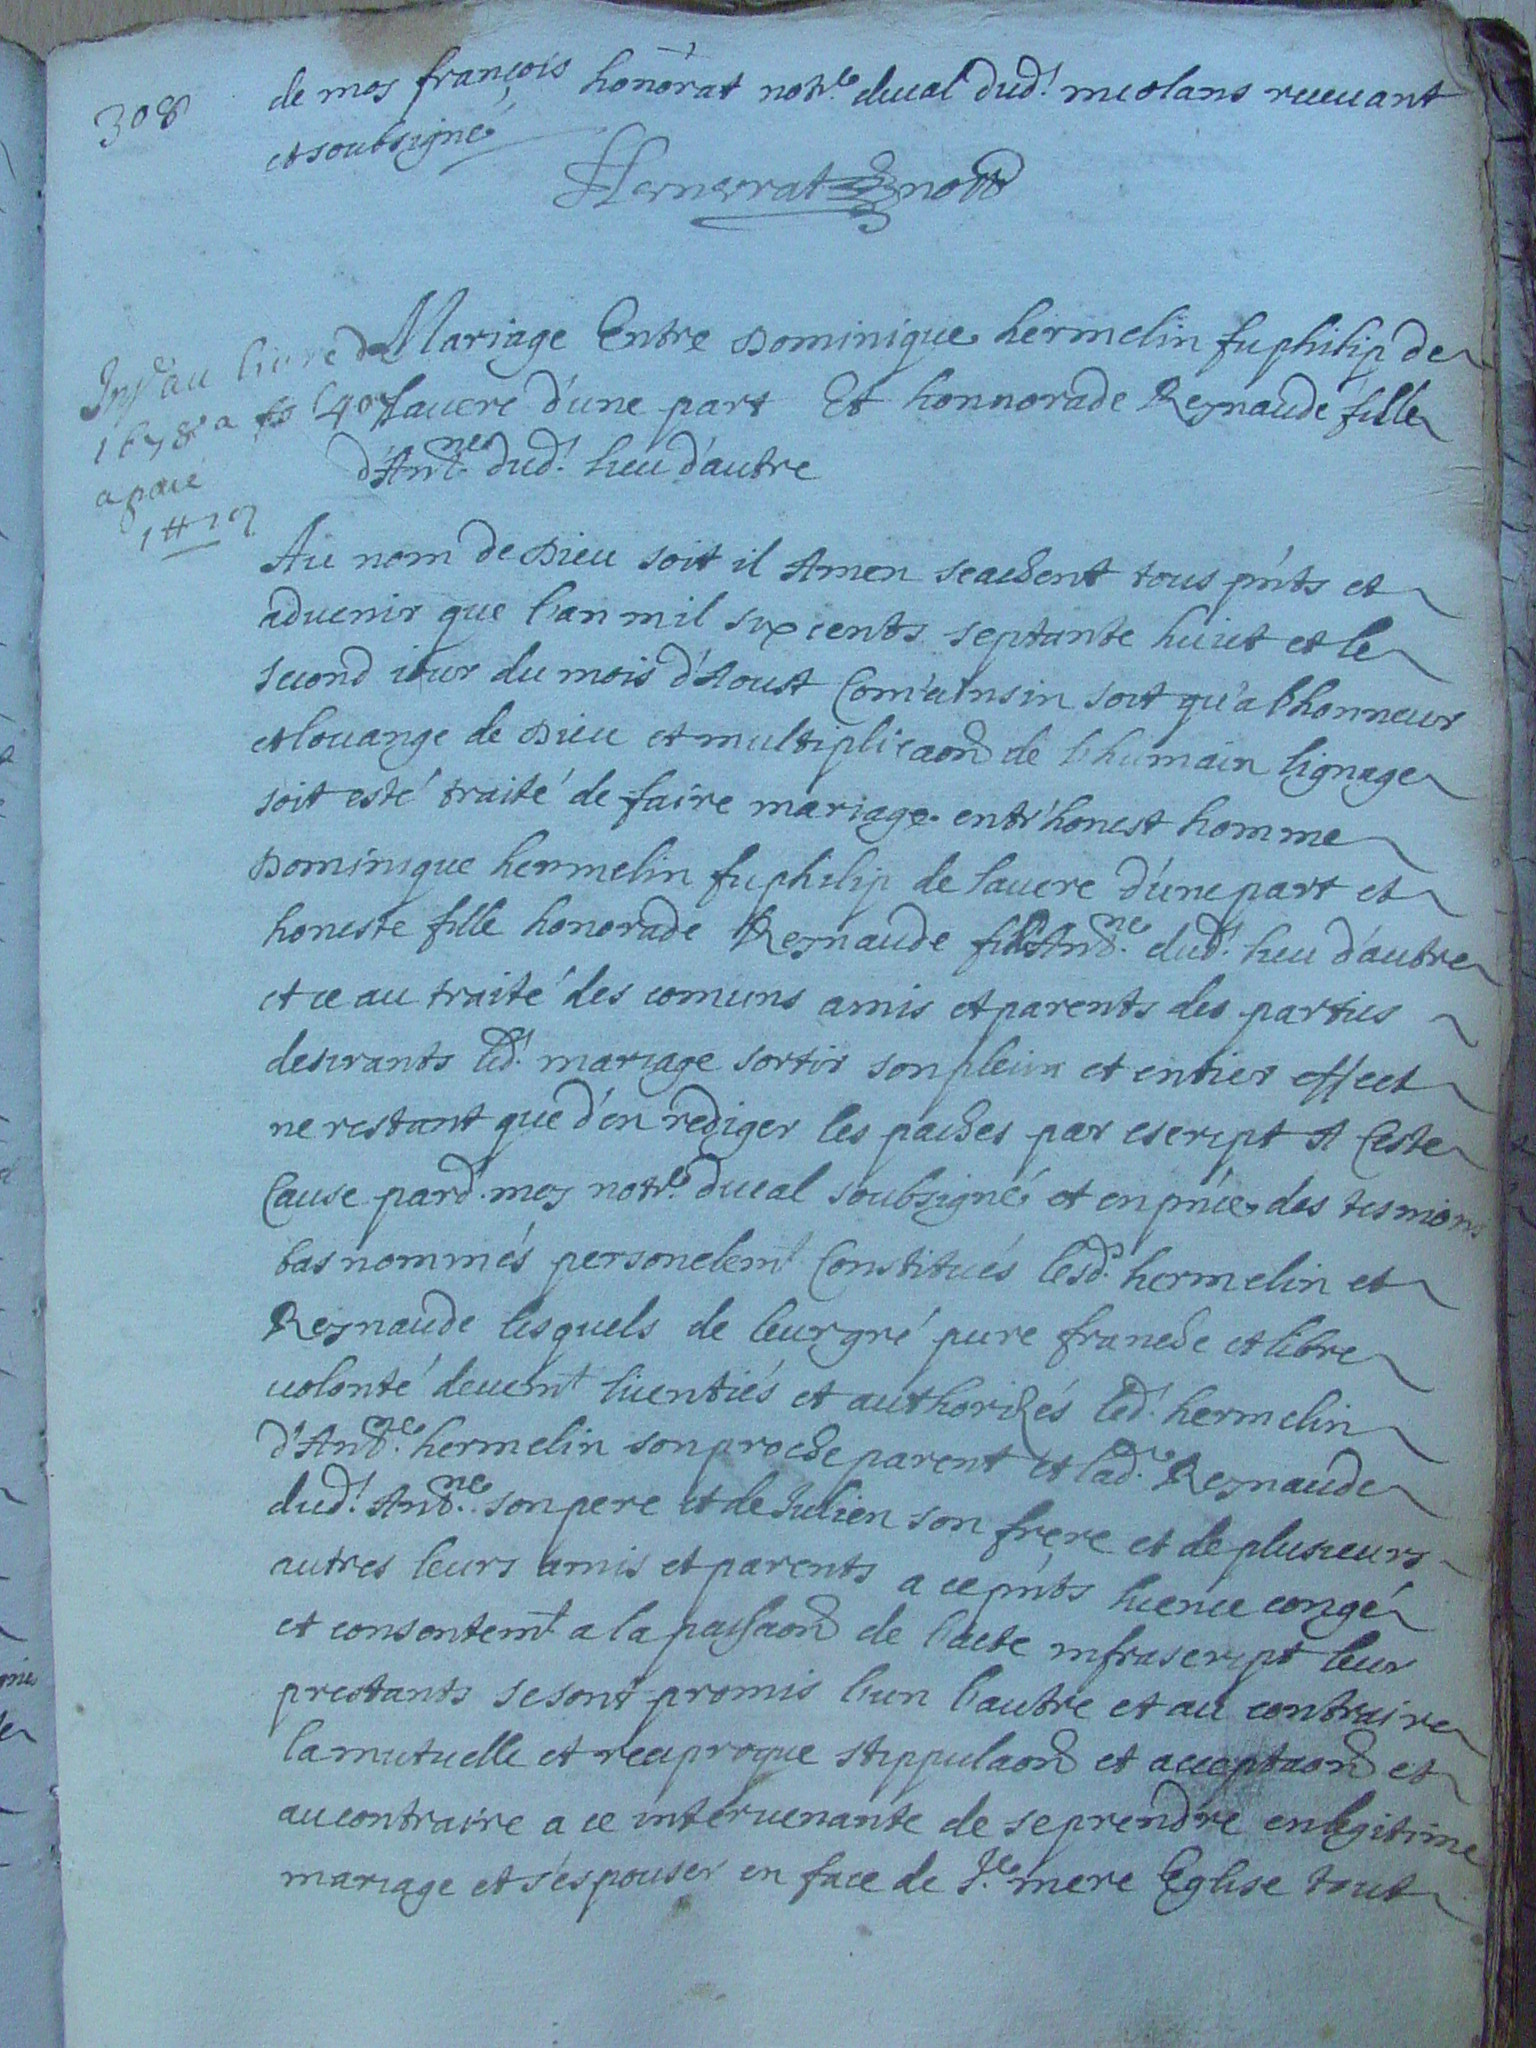 308
de moy françois honorat notre. ducal dud.t meolans recevant
et soubsigné
Honnorat nottre
Mariage Entre Dominique hermelin fu philip de
Lavere d'une part Et honnorade Reynaude fille
d'Anthne. dud.t lieu d'autre
Insé au livre de
1678 a fo 1407
a paié
1 # 19
Au nom de Dieu soit il Amen scachent tous pnts et
advenir que l'an mil six cents septante huict et le
second iour du mois d'Aoust Com'ainsin soit qu'a l'honneur
et louange de Dieu et multipliçaon de l'humain lignage
soit esté traité de faire mariage entr'honest homme
Dominique hermelin fu philip de Lavere d'une part et
honeste fille honorade Reynaude fille d'Anthne. dud.t lieu d'autre
et ce au traité des comuns amis et parents des parties
desirants led.t mariage sortir son plein et entier effect
ne restant que d'en rediger les paches par escript A Ceste
Cause pard.t moy notre. ducal soubsigné et en pnce des tesmoins
bas nommés personelemt Constitués lesd. hermelin et
Reynaude lesquels de leur gré pure franche et libre
volonté deuemt licentiés et authorizés led.t hermelin
d'Anthne. hermelin son proche parent et lad.e Reynaude
dud.t Anthne. son pere et de Julien son frere et de plusieurs
autres leurs amis et parents a ce pnts licence congé
et consentemt a la passaon de l'acte infrascript leur
prestants se sont promis l'un l'autre et au contraire
la mutuelle et reciproque stippulaon et acceptaon et
au contraire a ce intervenante de se prendre en legitime
mariage et s'espouser en face de Ste. mere Eglise tout